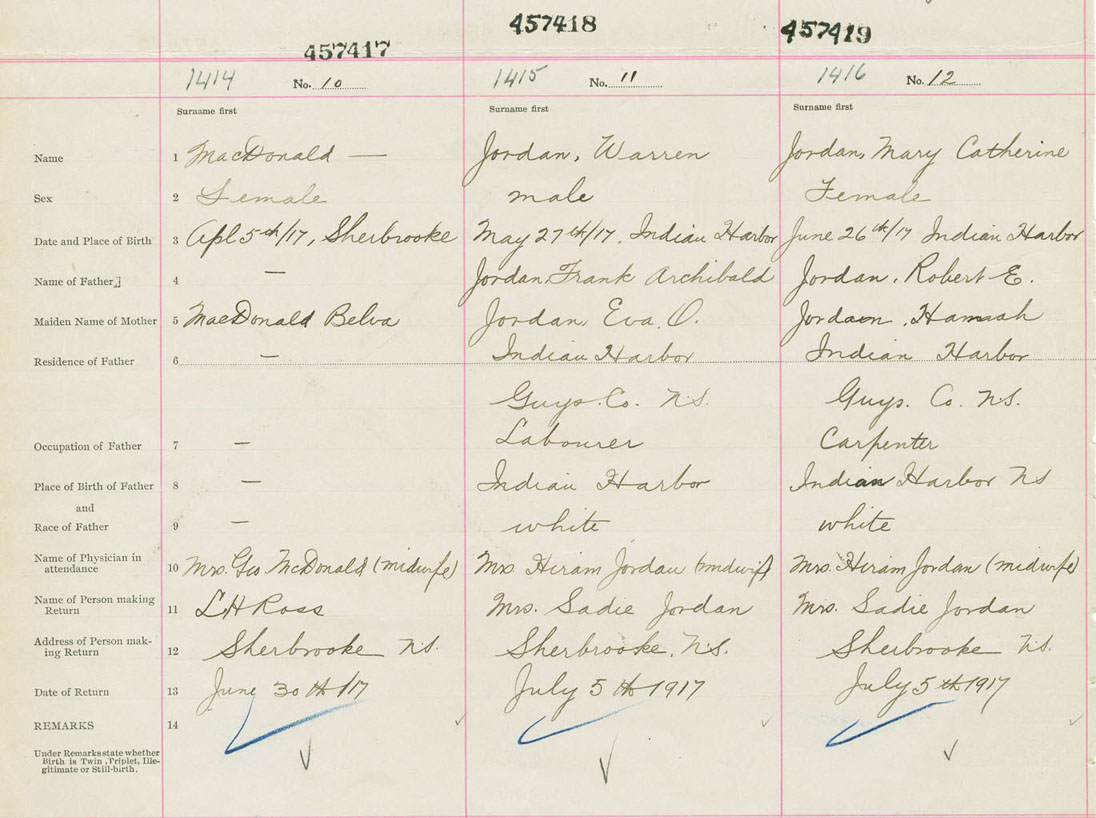 457417 457418 457419
1414 No. 10 1415 No. 11 1416 No. 12
Surname first Surname first Surname first
Name 1 MacDonald — Jordan, Warren Jordan, Mary Catherine
Sex 2 Female male Female
Date and Place of Birth 3 Apl 5th/17, Sherbrooke May 27th/17, Indian Harbor June 26th/17 Indian Harbor
Name of Father 4 — Jordan Frank Archibald Jordan, Robert E.
Maiden Name of Mother 5 MacDonald Belva Jordan, Eva. O. Jordan, Hannah
Residence of Father 6 — Indian Harbor Indian Harbor
Guys. Co. N.S. Guys. Co. N.S.
Occupation of Father 7 — Labourer Carpenter
Place of Birth of Father 8 — Indian Harbor Indian Harbor NS
and
Race of Father 9 — white white
Name of Physician in
attendance 10 Mrs. Geo McDonald (midwife) Mrs Hiram Jordan (midwife) Mrs. Hiram Jordan (midwife)
Name of Person making
Return 11 LH Ross Mrs. Sadie Jordan Mrs. Sadie Jordan
Address of Person mak-
ing Return 12 Sherbrooke N.S. Sherbrooke, N.S. Sherbrooke N.S.
Date of Return 13 June 30th/17 July 5th 1917 July 5th 1917
REMARKS 14
Under Remarks state whether
Birth is Twin, Triplet, Ille-
gitimate or Still-birth.